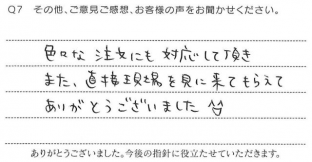 Q7 その他、ご意見ご感想、お客様の声をお聞かせください。
色々な注文にも対応して頂き
また、直接現場を見に来てもらえて
ありがとうございました
ありがとうございました。今後の指針に役立たせていただきます。